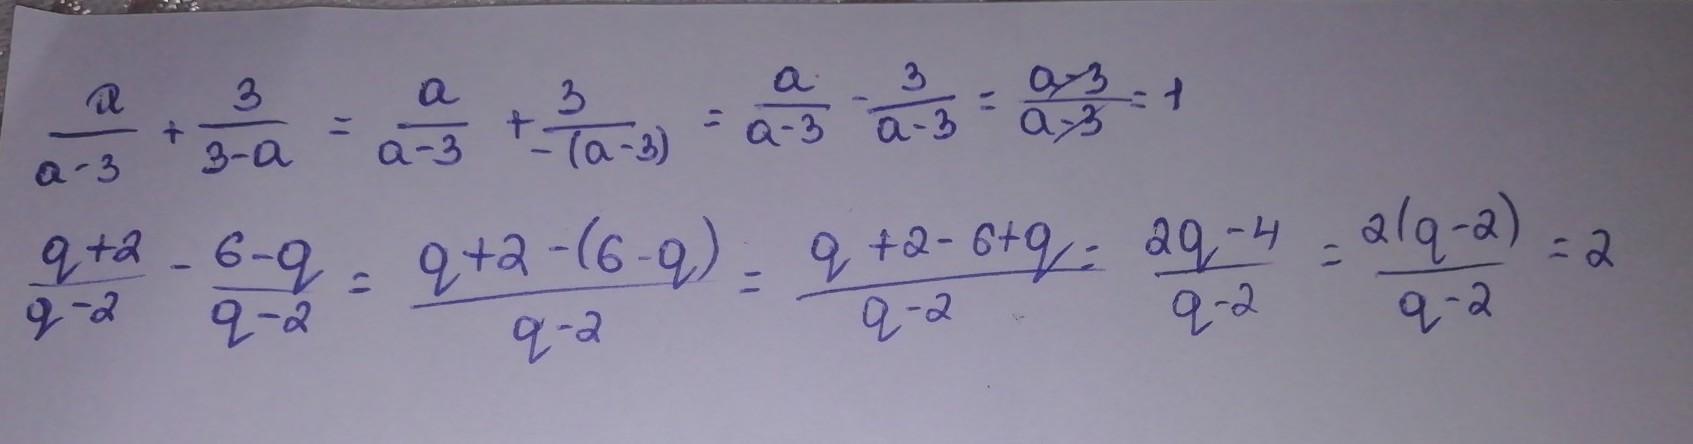 a/(a-3) + 3/(3-a) = a/(a-3) + 3/(-(a-3)) = a/(a-3) - 3/(a-3) = (a-3)/(a-3) = 1
(q+2)/(q-2) - (6-q)/(q-2) = (q+2-(6-q))/(q-2) = (q+2-6+q)/(q-2) = (2q-4)/(q-2) = 2(q-2)/(q-2) = 2